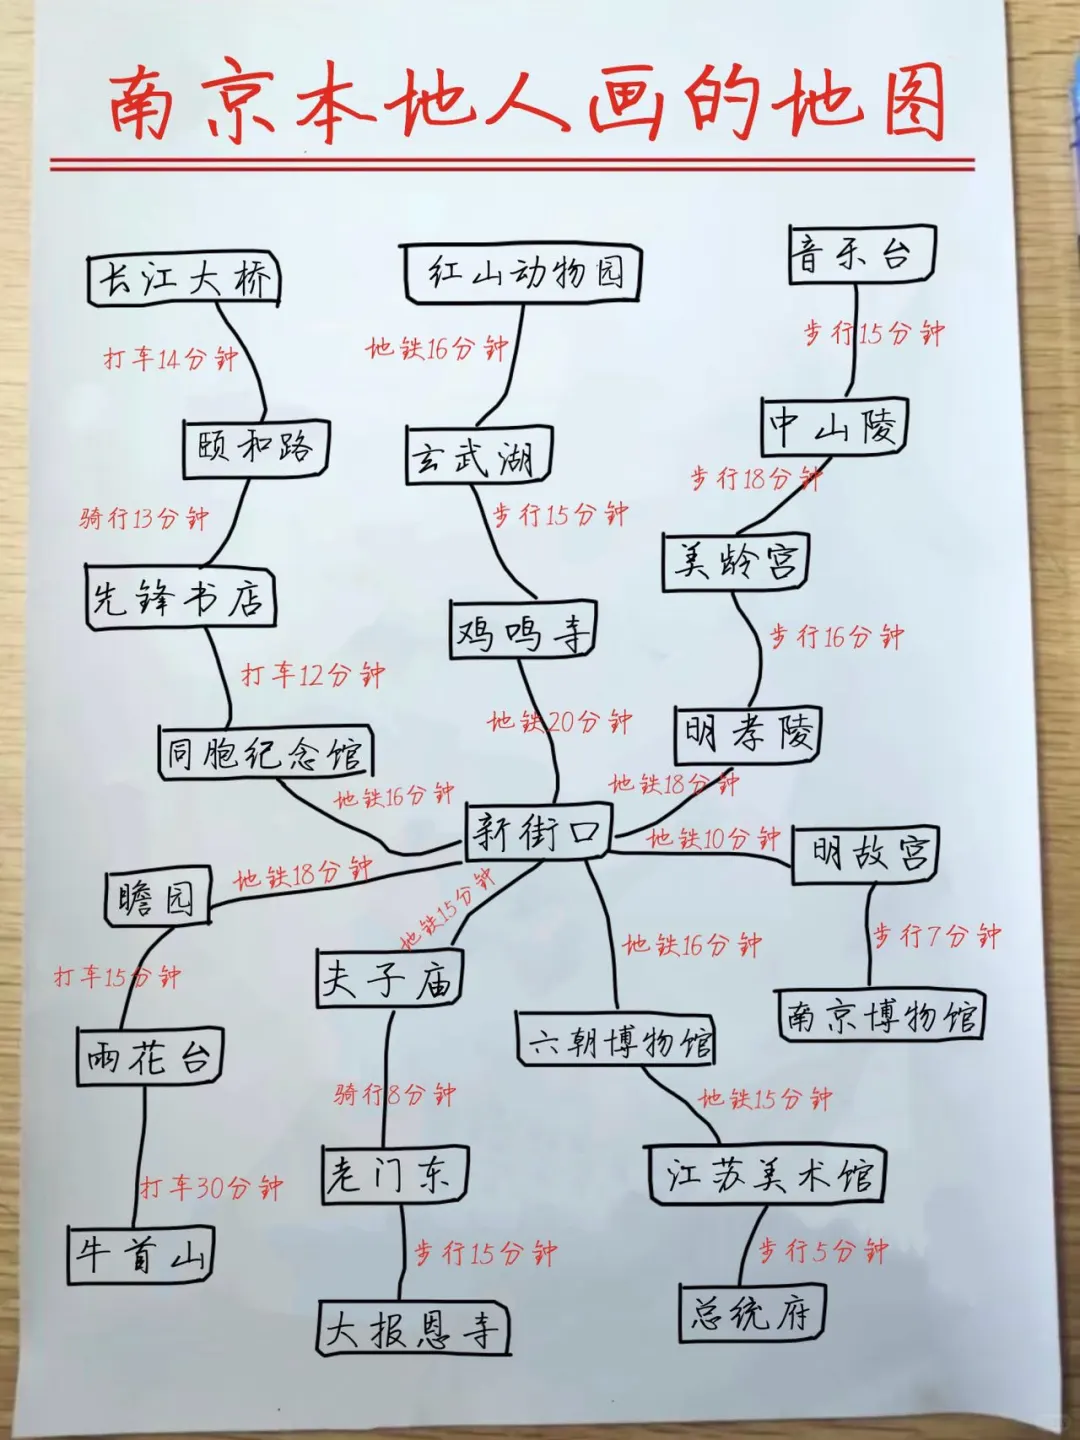 南京本地人画的地图
长江大桥
红山动物园
音乐台
打车14分钟
地铁16分钟
步行15分钟
颐和路
玄武湖
中山陵
骑行13分钟
步行15分钟
步行18分钟
先锋书店
鸡鸣寺
美龄宫
打车12分钟
地铁20分钟
步行16分钟
同胞纪念馆
明孝陵
地铁16分钟
地铁18分钟
新街口
地铁10分钟
明故宫
瞻园
地铁18分钟
地铁15分钟
地铁16分钟
步行7分钟
打车15分钟
夫子庙
六朝博物馆
南京博物馆
雨花台
骑行8分钟
地铁15分钟
打车30分钟
老门东
江苏美术馆
牛首山
步行15分钟
步行5分钟
大报恩寺
总统府